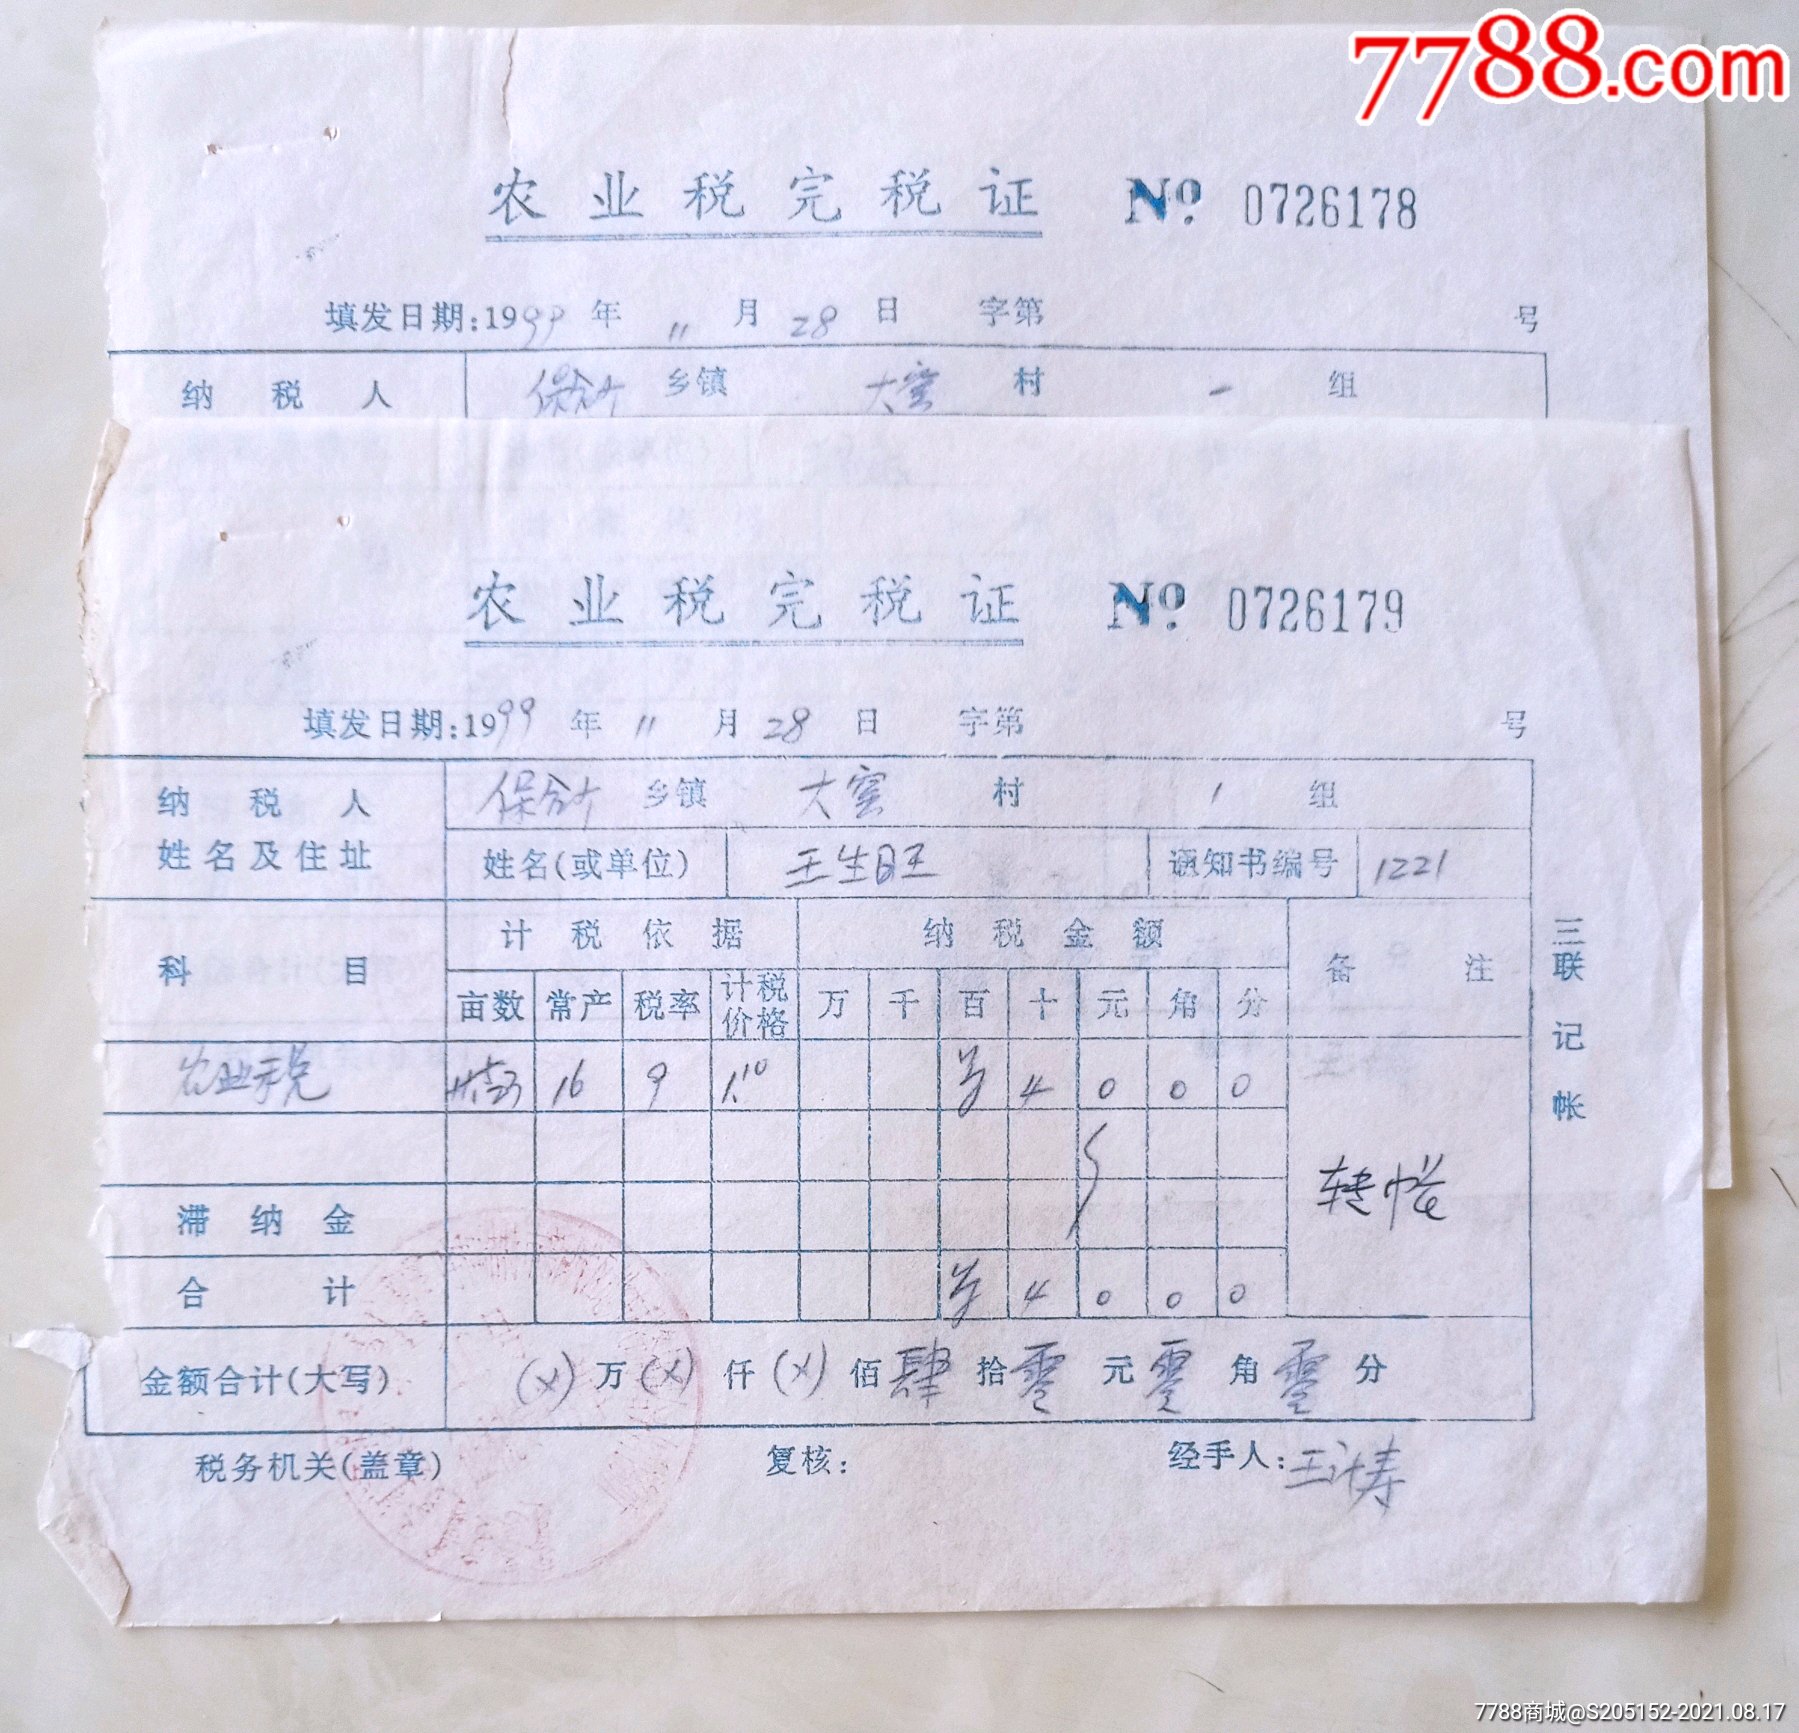 7788.com
农业税完税证 № 0726178
填发日期:1999年 11月 28日 字第 号
纳税人 乡镇 大窑 村 一 组
农业税完税证 № 0726179
填发日期:1999年 11月 28日 字第 号
纳税人 乡镇 大窑 村 1 组
姓名及住址 姓名(或单位) 王生旺 通知书编号 1221
科目 计税依据 纳税金额 备注
亩数 常产 税率 计税价格 万 千 百 十 元 角 分
农业税 16 9 1.10 ¥ 4 0 0 0
转帐
滞纳金
合计 ¥ 4 0 0 0
金额合计(大写) (×)万(×)仟(×)佰肆拾零元零角零分
税务机关(盖章) 复核: 经手人:
三联记帐
7788商城@S205152-2021.08.17